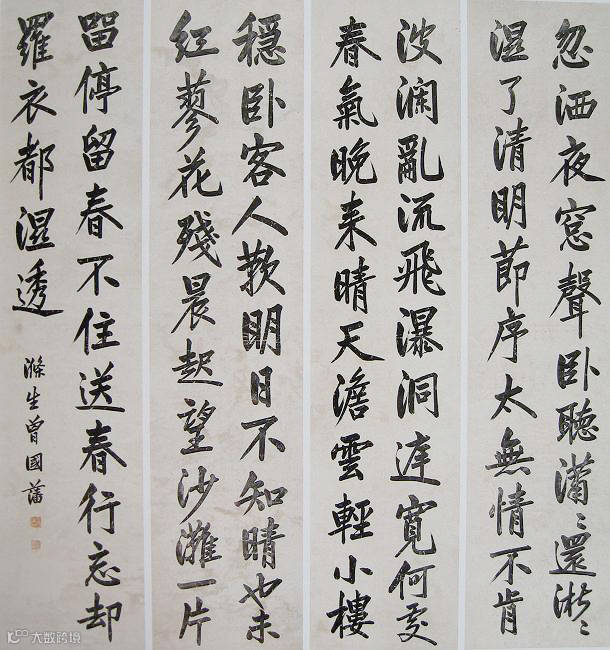 忽洒夜窓聲卧聴瀟〻還淅〻
湿了清明節序太無情不肯
波澜亂流飛瀑洞庭寬何處
春氣晚来晴天澹雲輕小樓
穏卧客人歎明日不知晴也未
红蓼花殘晨起望沙灘一片
畱停留春不住送春行忘却
羅衣都湿透
滌生曾國藩
大数跨境